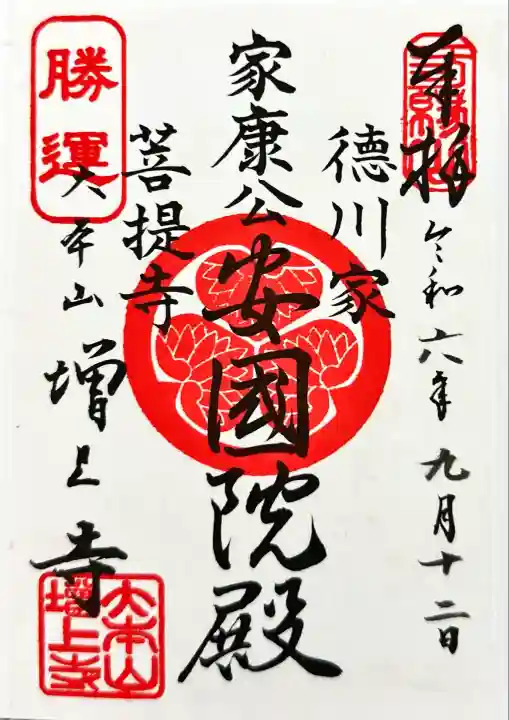 奉拝
令和六年九月十二日
徳川家
家康公
安國院殿
菩提寺
勝運
大本山
増上寺
大本山
增上寺